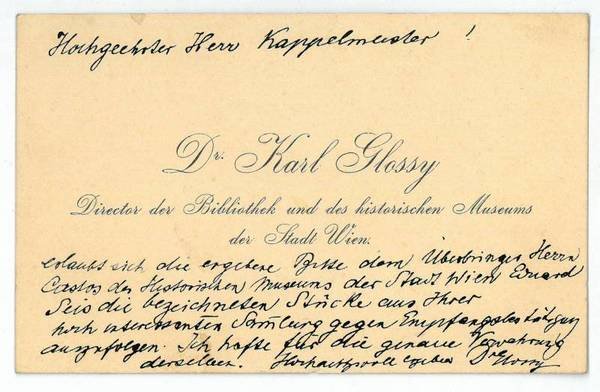 Hochgeehrter Herr Kappelmeister !
Dr. Karl Glossy
Director der Bibliothek und des historischen Museums
der Stadt Wien.
erlaubt sich die ergebene Bitte dem Überbringer Herrn
Custos des Historischen Museums der Stadt Wien Eduard
Seis die bezeichneten Stücke aus Ihrer
hoch interessanten Samlung gegen Empfangsbestätigung
auszufolgen. Ich hafte für die genaue Verwahrung
derselben. Hochachtungsvoll ergeben Dr Glossy